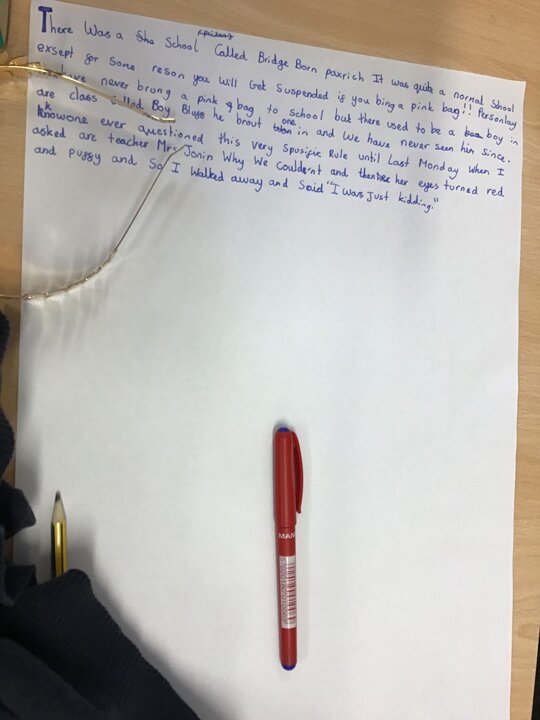 There Was a Sha School Called Bridge Born paxrich It was quite a normal School
exsept for Some reson you Will Get Suspended if you bing a pink bag!! Personlay
have never brung a pink bag to School but there used to be a boy in
are class called Boy Bloggs he brout one in and We have never seen him since.
knowone ever questioned this very Spusific Rule until Last Monday When I
asked are teacher Mrs Jonin Why We Couldent and then her eyes turned red
and puffy and So I Walked away and Said "I Was Just kidding."
MAN